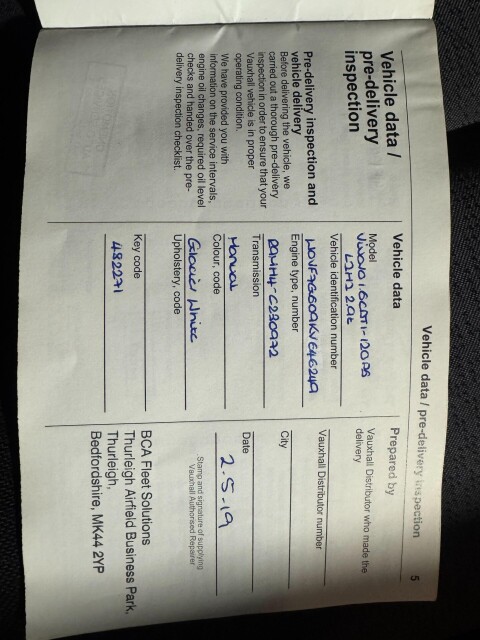 Vehicle data / pre-delivery inspection 5
Vehicle data /
pre-delivery
inspection
Pre-delivery inspection and
vehicle delivery
Before delivering the vehicle, we
carried out a thorough pre-delivery
inspection in order to ensure that your
Vauxhall vehicle is in proper
operating condition.
We have provided you with
information on the service intervals,
engine oil changes, required oil level
checks and handed over the pre-
delivery inspection checklist.
Vehicle data
Model
Vivaro 1.6CDTI-120PS
L2H1 2.9t
Vehicle identification number
Engine type, number
Transmission
Manual
Colour, code
Glacier White
Upholstery, code
Key code
482271
Prepared by
Vauxhall Distributor who made the
delivery
Vauxhall Distributor number
City
Date
2-5-19
Stamp and signature of supplying
Vauxhall Authorised Repairer
BCA Fleet Solutions
Thurleigh Airfield Business Park,
Thurleigh,
Bedfordshire, MK44 2YP